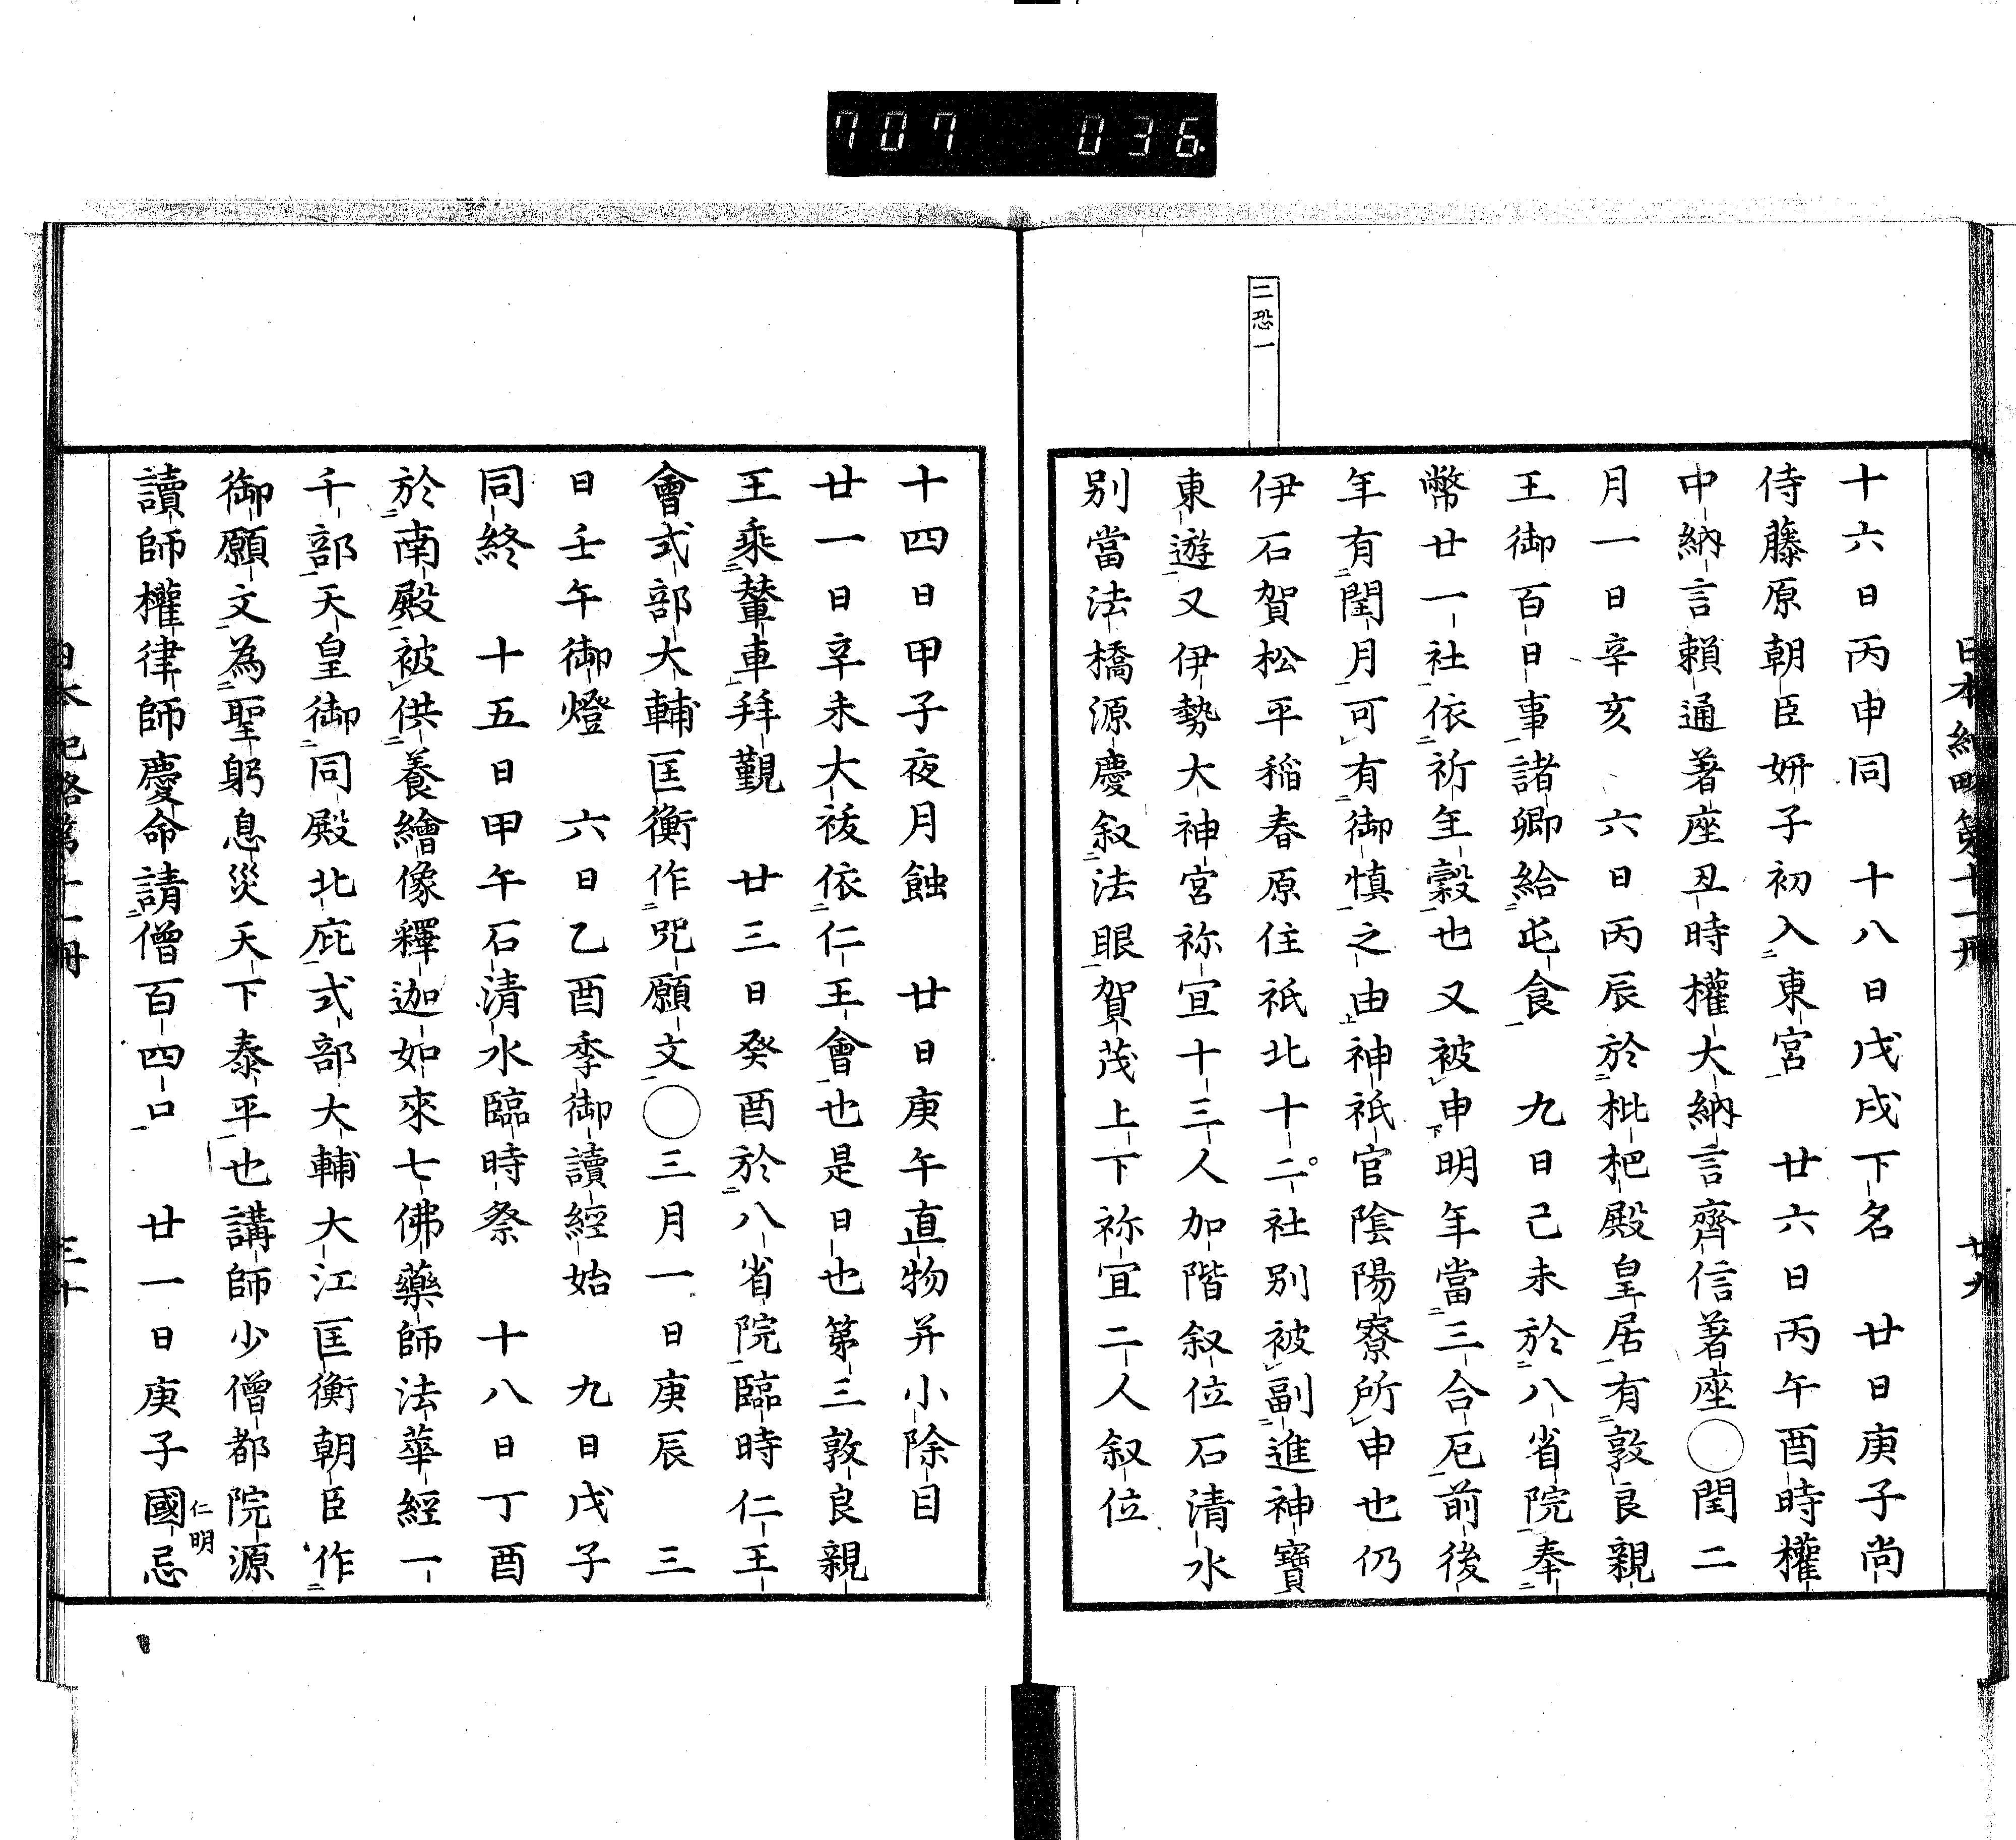 707 036
二恐一
日本紀略第十一冊 廿九
十六日丙申同 十八日戊戌下名 廿日庚子尚
侍藤原朝臣妍子初入東宮 廿六日丙午酉時權
中納言賴通著座丑時權大納言齊信著座○閏二
月一日辛亥 六日丙辰於枇杷殿皇居有敦良親
王御百日事諸卿給屯食 九日己未於八省院奉
幣廿一社依祈年穀也又被申明年當三合厄前後
年有閏月可有御慎之由神祇官陰陽寮所申也仍
伊石賀松平稲春原住祇北十二社別被副進神寶
東遊又伊勢大神宮祢宜十三人加階叙位石清水
別當法橋源慶叙法眼賀茂上下祢宜二人叙位
十四日甲子夜月蝕 廿日庚午直物并小除目
廿一日辛未大祓依仁王會也是日也第三敦良親
王乘輦車拜覲 廿三日癸酉於八省院臨時仁王
會式部大輔匡衡作咒願文○三月一日庚辰 三
日壬午御燈 六日乙酉季御讀經始 九日戊子
同終 十五日甲午石清水臨時祭 十八日丁酉
於南殿被供養繪像釋迦如來七佛藥師法華經一
千部天皇御同殿北庇式部大輔大江匡衡朝臣作
御願文為聖躬息災天下泰平也講師少僧都院源
讀師權律師慶命請僧百四口 廿一日庚子國忌
仁明
日本紀略第十一冊 三十